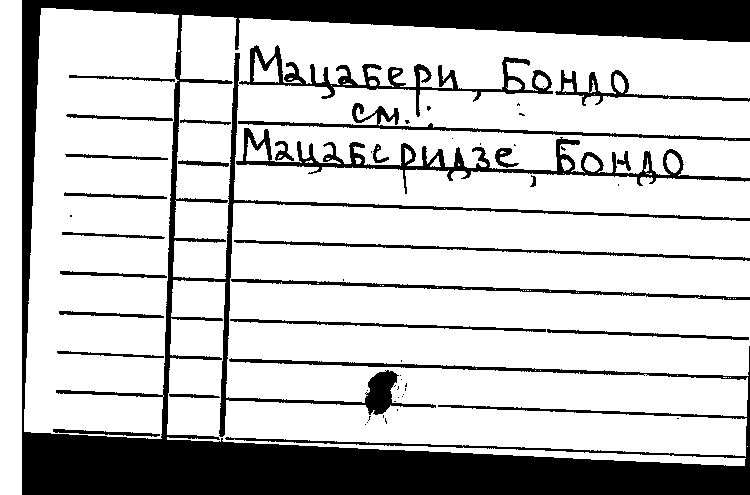 Мацабери, Бондо
см.:
Мацаберидзе, Бондо